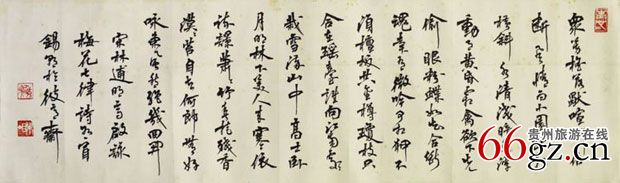 眾芳搖落獨喧妍占
盡風情向小園
橫斜水清淺暗香浮
動月黃昏霜禽欲下先
偷眼粉蝶如知合斷
魂幸有微吟可相狎不
須檀板共金樽瓊枝只
合在瑤臺誰向江南處處
栽雪滿山中高士臥
月明林下美人來寒依
疏影蕭蕭竹春掩殘香
漠漠苔自去何郎無好
詠東風愁寂幾回開
宋林逋明高啟詠
梅花七律詩各一首
齋
贵州旅游在线
66gz.cn